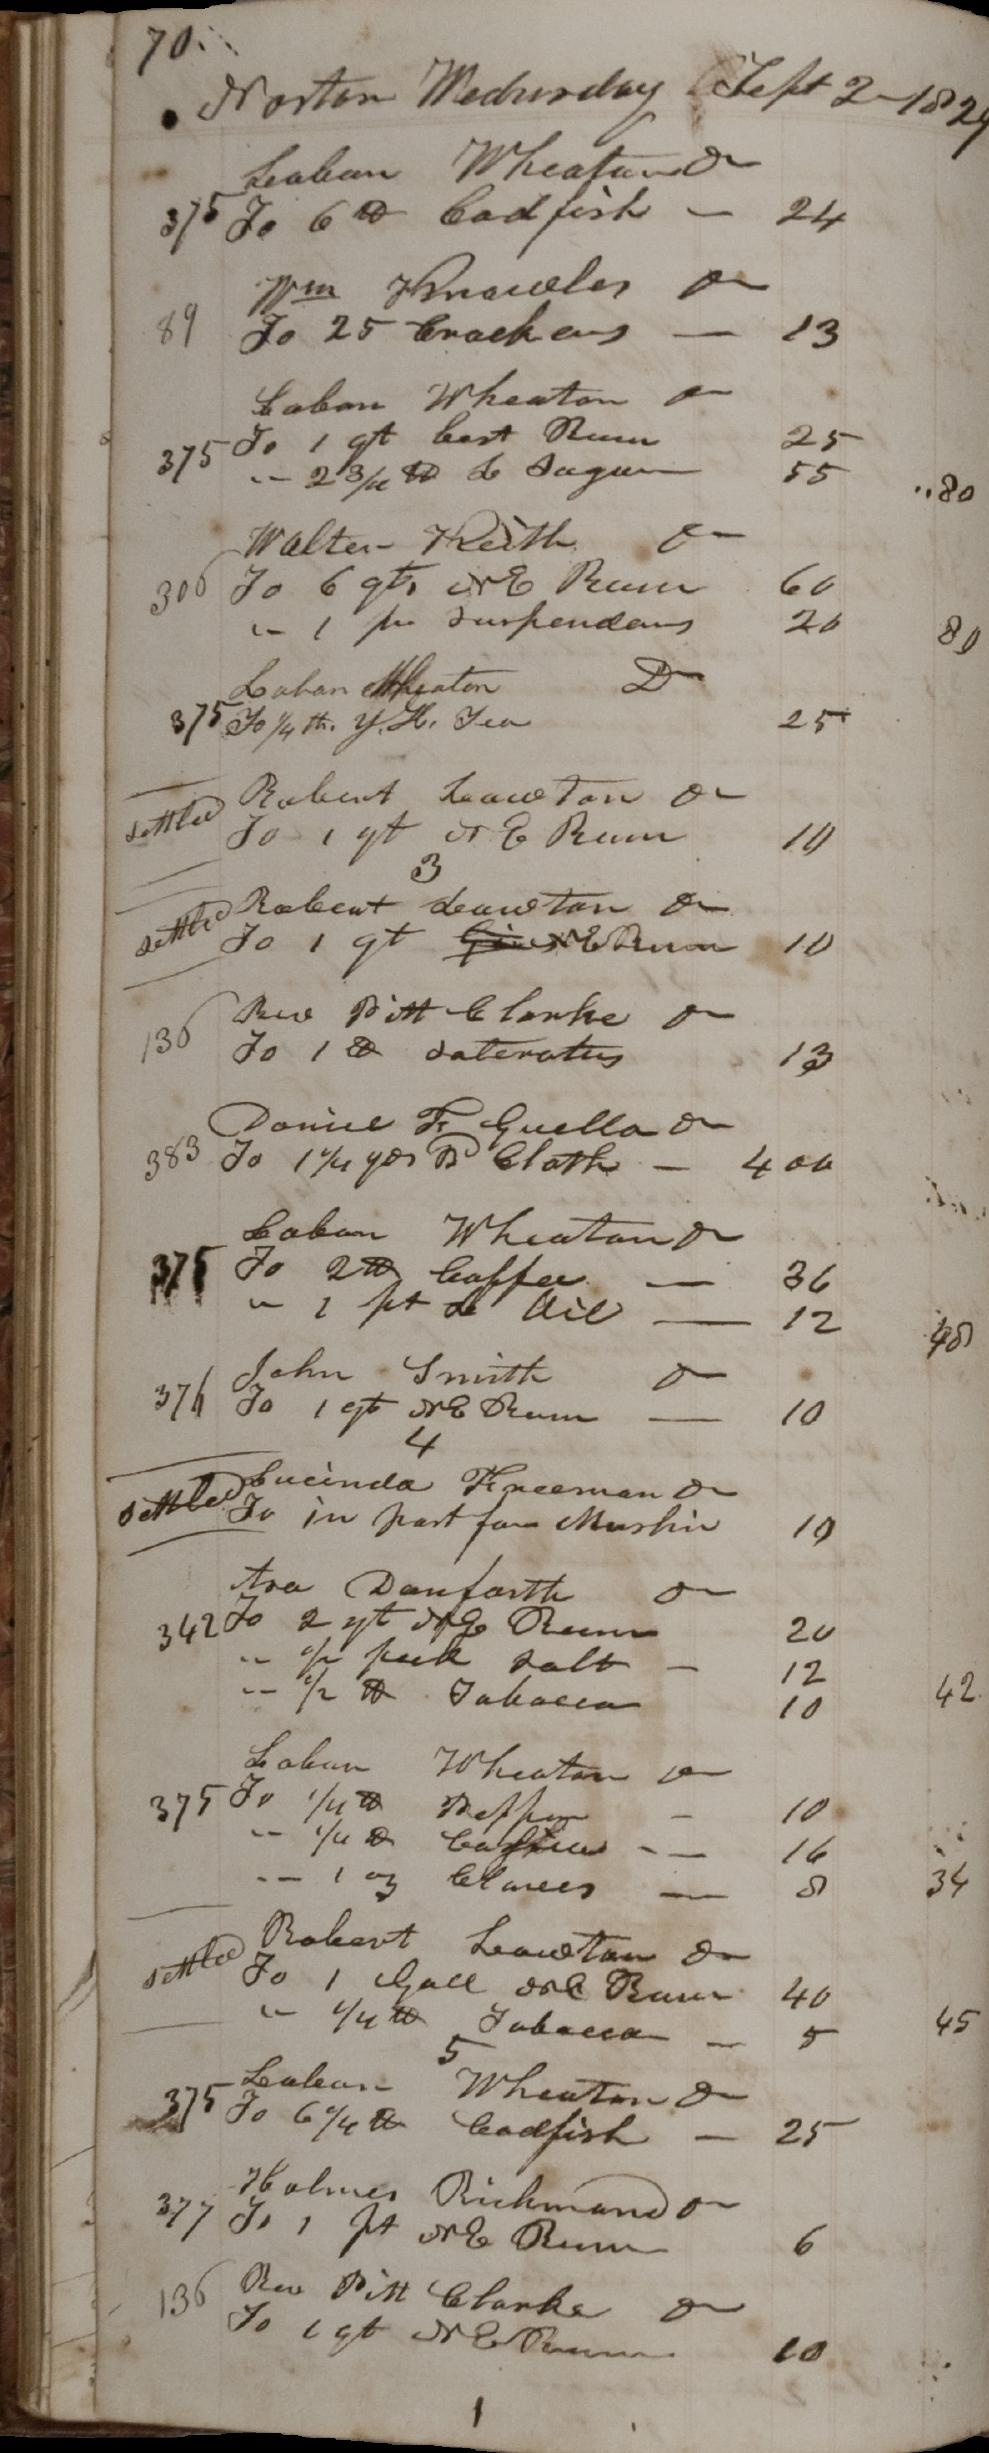 70.
Norton Wednesday Sept 2 - 1829
Laban Wheaton Dr
375 To 6 lb Codfish — 24
Wm Knowles Dr
89 To 25 Crackers — 13
Laban Wheaton Dr
375 To 1 qt best Rum 25
" 2 3/4 lb L Sugar 55 "80
Walter Keith Dr
306 To 6 qts NE Rum 60
" 1 pr Suspenders 20 80
Laban Wheaton Dr
375 To 1/4 lb. Y. H. Tea 25
Robert Lawton Dr
settled To 1 qt NE Rum 10
3
Robert Lawton Dr
settled To 1 qt Gin NE Rum 10
Rev Pitt Clarke Dr
136 To 1 lb Saleratus 13
Daniel F Guella Dr
383 To 1 1/4 yds B Cloth — 4 00
Laban Wheaton Dr
375 To 2 lb Coffee — 36
" 1 pt L Oil — 12 48
John Smith Dr
376 To 1 qt NE Rum — 10
4
Lucinda Freeman Dr
settled To in part for Muslin 10
Asa Danforth Dr
342 To 2 qt NE Rum 20
" 1/2 peck Salt — 12
" 1/2 lb Tobacco 10 42
Laban Wheaton Dr
375 To 1/4 lb Pepper — 10
" 1/4 lb — 16
" 1 oz Cloves — 8 34
Robert Lawton Dr
settled To 1 Gall NE Rum 40
" 1/4 lb Tobacco — 5 45
5
Laban Wheaton Dr
375 To 6 1/4 lb Codfish — 25
Holmes Richmond Dr
377 To 1 pt NE Rum 6
Rev Pitt Clarke Dr
136 To 1 qt NE Rum 10
1